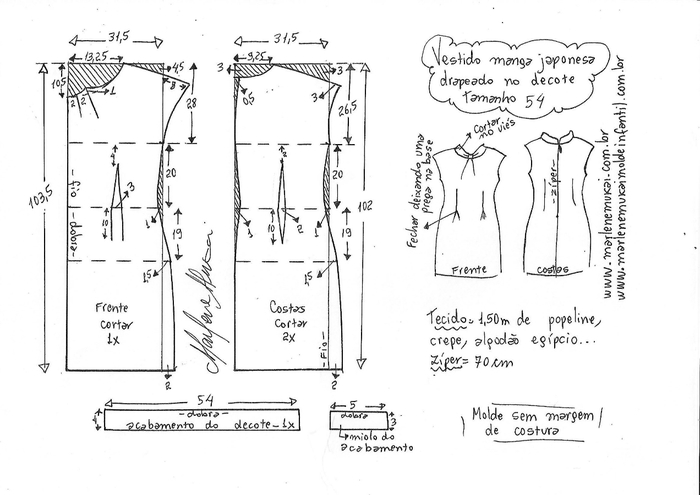 Vestido manga japonesa
drapeado no decote
tamanho 54
www.marlenemukai.com.br
www.marlenemukaimoldeinfantil.com.br
31,5
13,25
10,5
2
2
1
4,5
8
28
103,5
4
3
20
10
1
19
1,5
-dobra-
fio
Frente
cortar
1x
2
31,5
9,25
3
3
0,5
3
26,5
2
20
102
10
2
1
19
1,5
Costas
Cortar
2x
-Fio-
2
cortar
no viés
Fechar deixando uma
prega na base
-zíper-
Frente
costas
Tecido= 1,50m de popeline,
crepe, algodão egípcio...
zíper= 70cm
54
4
-dobra-
acabamento do decote-1x
5
dobra
3
miolo do
acabamento
Molde sem margem
de costura